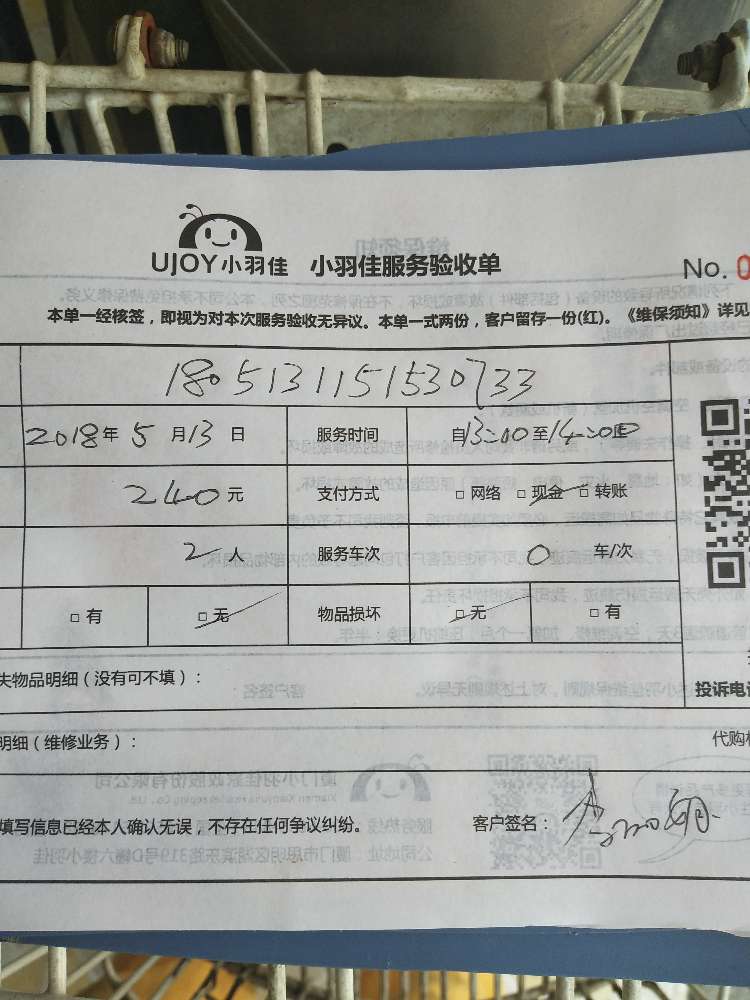 UJOY小羽佳 小羽佳服务验收单
No. 0
本单一经核签，即视为对本次服务验收无异议。本单一式两份，客户留存一份(红)。《维保须知》详见
1805131151530733
2018年 5 月 13 日 服务时间 自13:00至14:00
240 元 支付方式 □ 网络 □ 现金 □ 转账
2 人 服务车次 0 车/次
□ 有 □ 无 物品损坏 □ 无 □ 有
失物品明细（没有可不填）：
投诉电话
明细（维修业务）： 代购
填写信息已经本人确认无误，不存在任何争议纠纷。 客户签名：